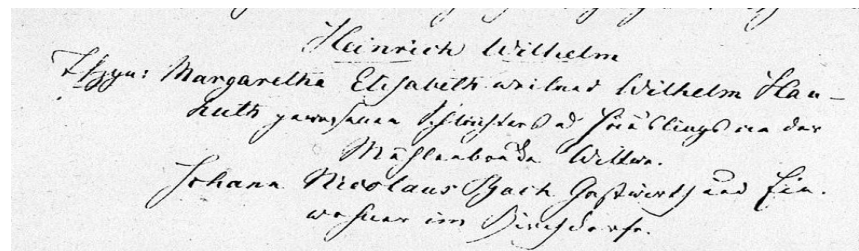 Heinrich Wilhelm
Margaretha Elisabeth weiland Wilhelm Hau-
huth gewesenen Schlachters und Häuslings in der
Mühlenbrücke Wittwe.
Johann Nicolaus Bach Gastwirth und Ein-
wohner im Kirchdorfe.